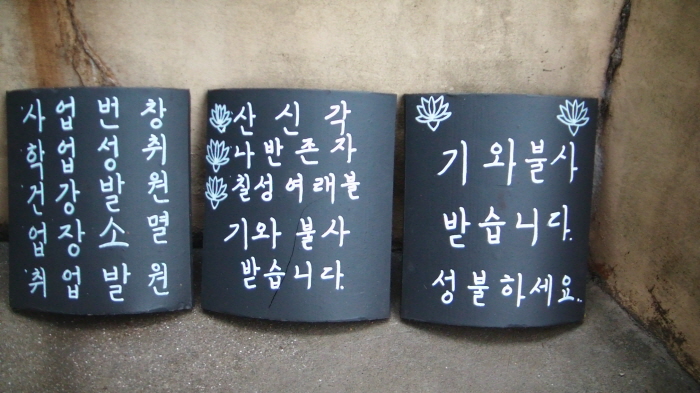 사 업 번 창
학 업 성 취
건 강 발 원
업 장 소 멸
취 업 발 원
산 신 각
나 반 존 자
칠성여래불
기와 불사
받습니다.
기와불사
받습니다.
성불하세요..